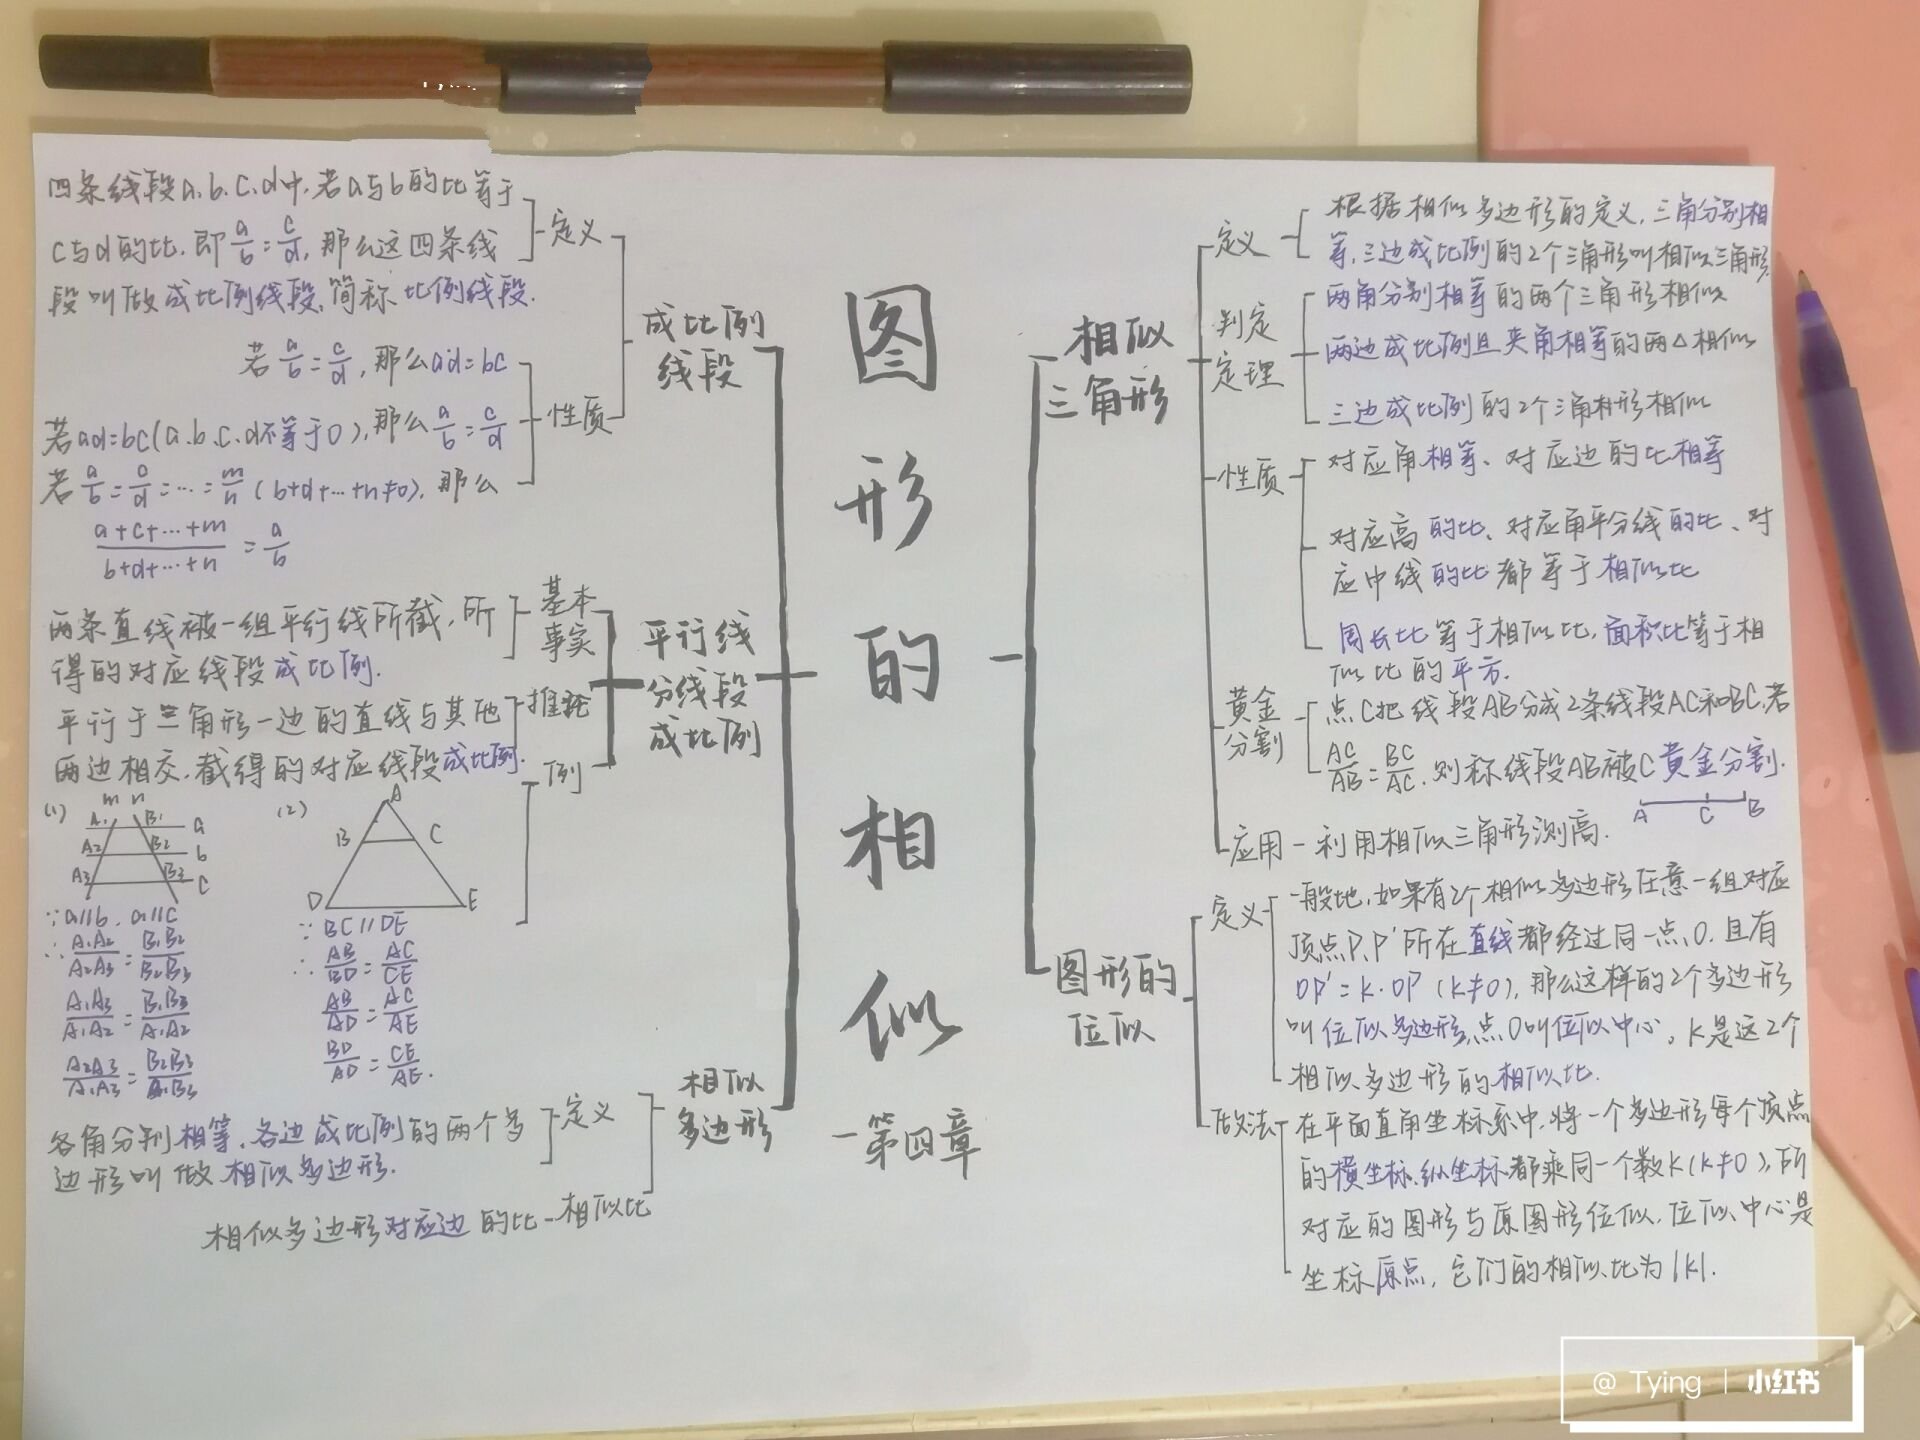 四条线段a.b.c.d中,若a与b的比等于
c与d的比.即a/b=c/d,那么这四条线
段叫做成比例线段,简称比例线段.
定义
若a/b=c/d,那么ad=bc
若ad=bc(a.b.c.d不等于0),那么a/b=c/d
若a/b=c/d=…=m/n(b+d+…+n≠0),那么
(a+c+…+m)/(b+d+…+n)=a/b
性质
成比例
线段
两条直线被一组平行线所截,所
得的对应线段成比例.
基本
事实
平行于三角形一边的直线与其他
两边相交,截得的对应线段成比例.
推论
例
平行线
分线段
成比例
(1)
m n
A1 B1 a
A2 B2 b
A3 B3 c
∵a//b,a//c
∴A1A2/A2A3=B1B2/B2B3
A1A3/A1A2=B1B3/A1A2
A2A3/A1A3=B2B3/B1B3
(2)
A
B C
D E
∵BC//DE
∴AB/BD=AC/CE
AB/AD=AC/AE
BD/AD=CE/AE.
各角分别相等、各边成比例的两个多
边形叫做相似多边形.
定义
相似多边形对应边的比-相似比
相似
多边形
图形的相似
-第四章
相似
三角形
定义
根据相似多边形的定义,三角分别相
等,三边成比例的2个三角形叫相似三角形.
判定
定理
两角分别相等的两个三角形相似
两边成比例且夹角相等的两△相似
三边成比例的2个三角形相似
性质
对应角相等、对应边的比相等
对应高的比、对应角平分线的比、对
应中线的比都等于相似比
周长比等于相似比,面积比等于相
似比的平方.
黄金
分割
点C把线段AB分成2条线段AC和BC,若
AC/AB=BC/AC.则称线段AB被C黄金分割.
A C B
应用-利用相似三角形测高.
图形的
位似
定义
一般地,如果有2个相似多边形任意一组对应
顶点P,P'所在直线都经过同一点O.且有
OP'=K·OP(K≠0),那么这样的2个多边形
叫位似多边形,点O叫位似中心,K是这2个
相似多边形的相似比.
做法
在平面直角坐标系中,将一个多边形每个顶点
的横坐标、纵坐标都乘同一个数K(K≠0),所
对应的图形与原图形位似,位似中心是
坐标原点,它们的相似比为|K|.
@ Tying | 小红书